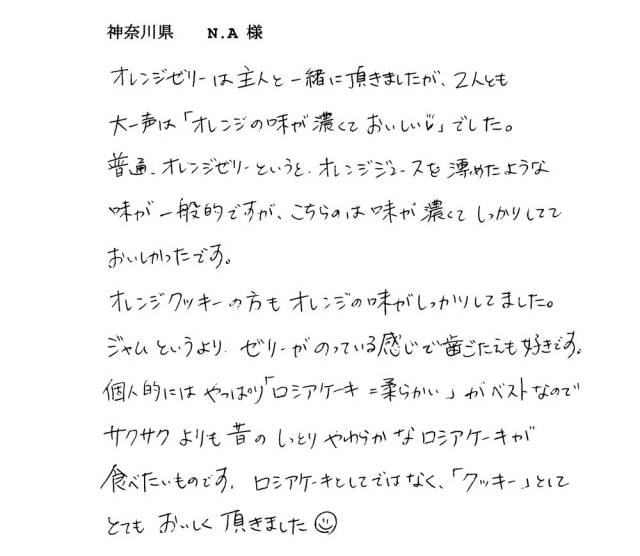 神奈川県　　N.A 様
オレンジゼリーは主人と一緒に頂きましたが、2人とも
大一声は「オレンジの味が濃くておいしい!」でした。
普通、オレンジゼリーというと、オレンジジュースを薄めたような
味が一般的ですが、こちらのは味が濃くてしっかりしてて
おいしかったです。
オレンジクッキーの方もオレンジの味がしっかりしてました。
ジャムというより、ゼリーがのっている感じで歯ごたえも好きです。
個人的にはやっぱり「ロシアケーキ=柔らかい」がベストなので
サクサクよりも昔のしっとりやわらかなロシアケーキが
食べたいものです。ロシアケーキとしてではなく、「クッキー」として
とてもおいしく頂きました☺